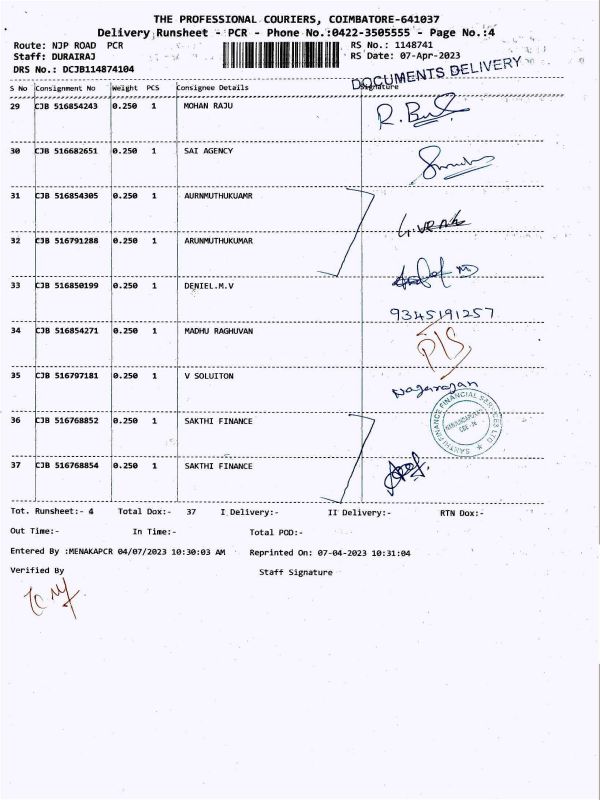 THE PROFESSIONAL COURIERS, COIMBATORE-641037
Delivery Runsheet - PCR - Phone No.:0422-3505555 - Page No.:4
Route: NJP ROAD PCR RS No.: 1148741
Staff: DURAIRAJ RS Date: 07-Apr-2023
DRS No.: DCJB114874104
DOCUMENTS DELIVERY
S No Consignment No Weight PCS Consignee Details Signature
29 CJB 516854243 0.250 1 MOHAN RAJU
30 CJB 516682651 0.250 1 SAI AGENCY
31 CJB 516854305 0.250 1 AURNMUTHUKUAMR
32 CJB 516791288 0.250 1 ARUNMUTHUKUMAR
33 CJB 516850199 0.250 1 DENIEL.M.V
9345191257
34 CJB 516854271 0.250 1 MADHU RAGHUVAN
P/S
35 CJB 516797181 0.250 1 V SOLUITON
Nagarajan
36 CJB 516768852 0.250 1 SAKTHI FINANCE
SAKTHI FINANCE FINANCIAL SERVICES LTD
37 CJB 516768854 0.250 1 SAKTHI FINANCE
Tot. Runsheet:- 4 Total Dox:- 37 I Delivery:- II Delivery:- RTN Dox:-
Out Time:- In Time:- Total POD:-
Entered By :MENAKAPCR 04/07/2023 10:30:03 AM Reprinted On: 07-04-2023 10:31:04
Verified By Staff Signature